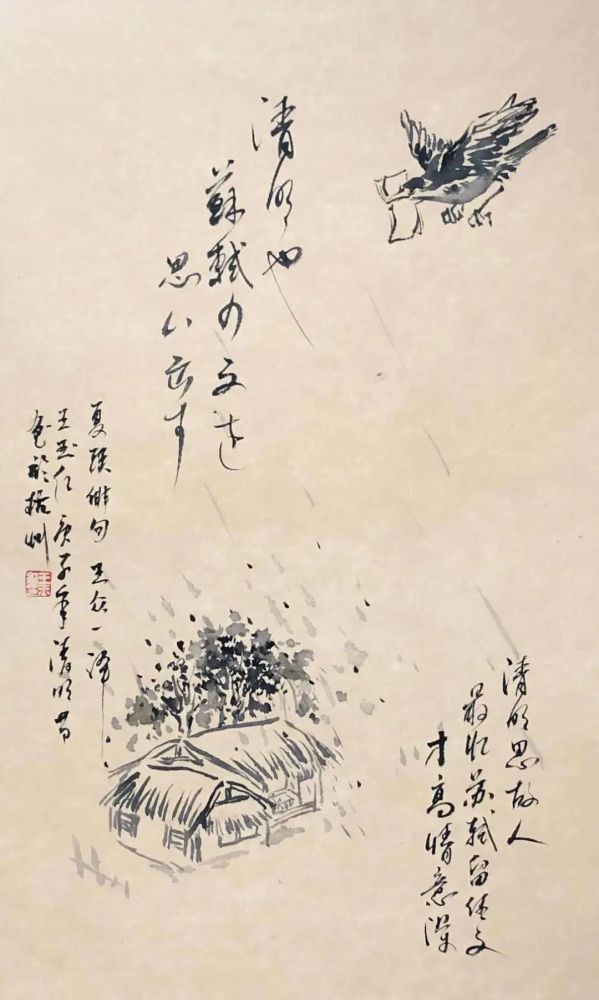 清明や
蘇軾の文を
思い出す
夏瑛俳句 王众一译
王玉仁庚子年清明节
清明思故人
最忆苏轼留佳文
才高情意深